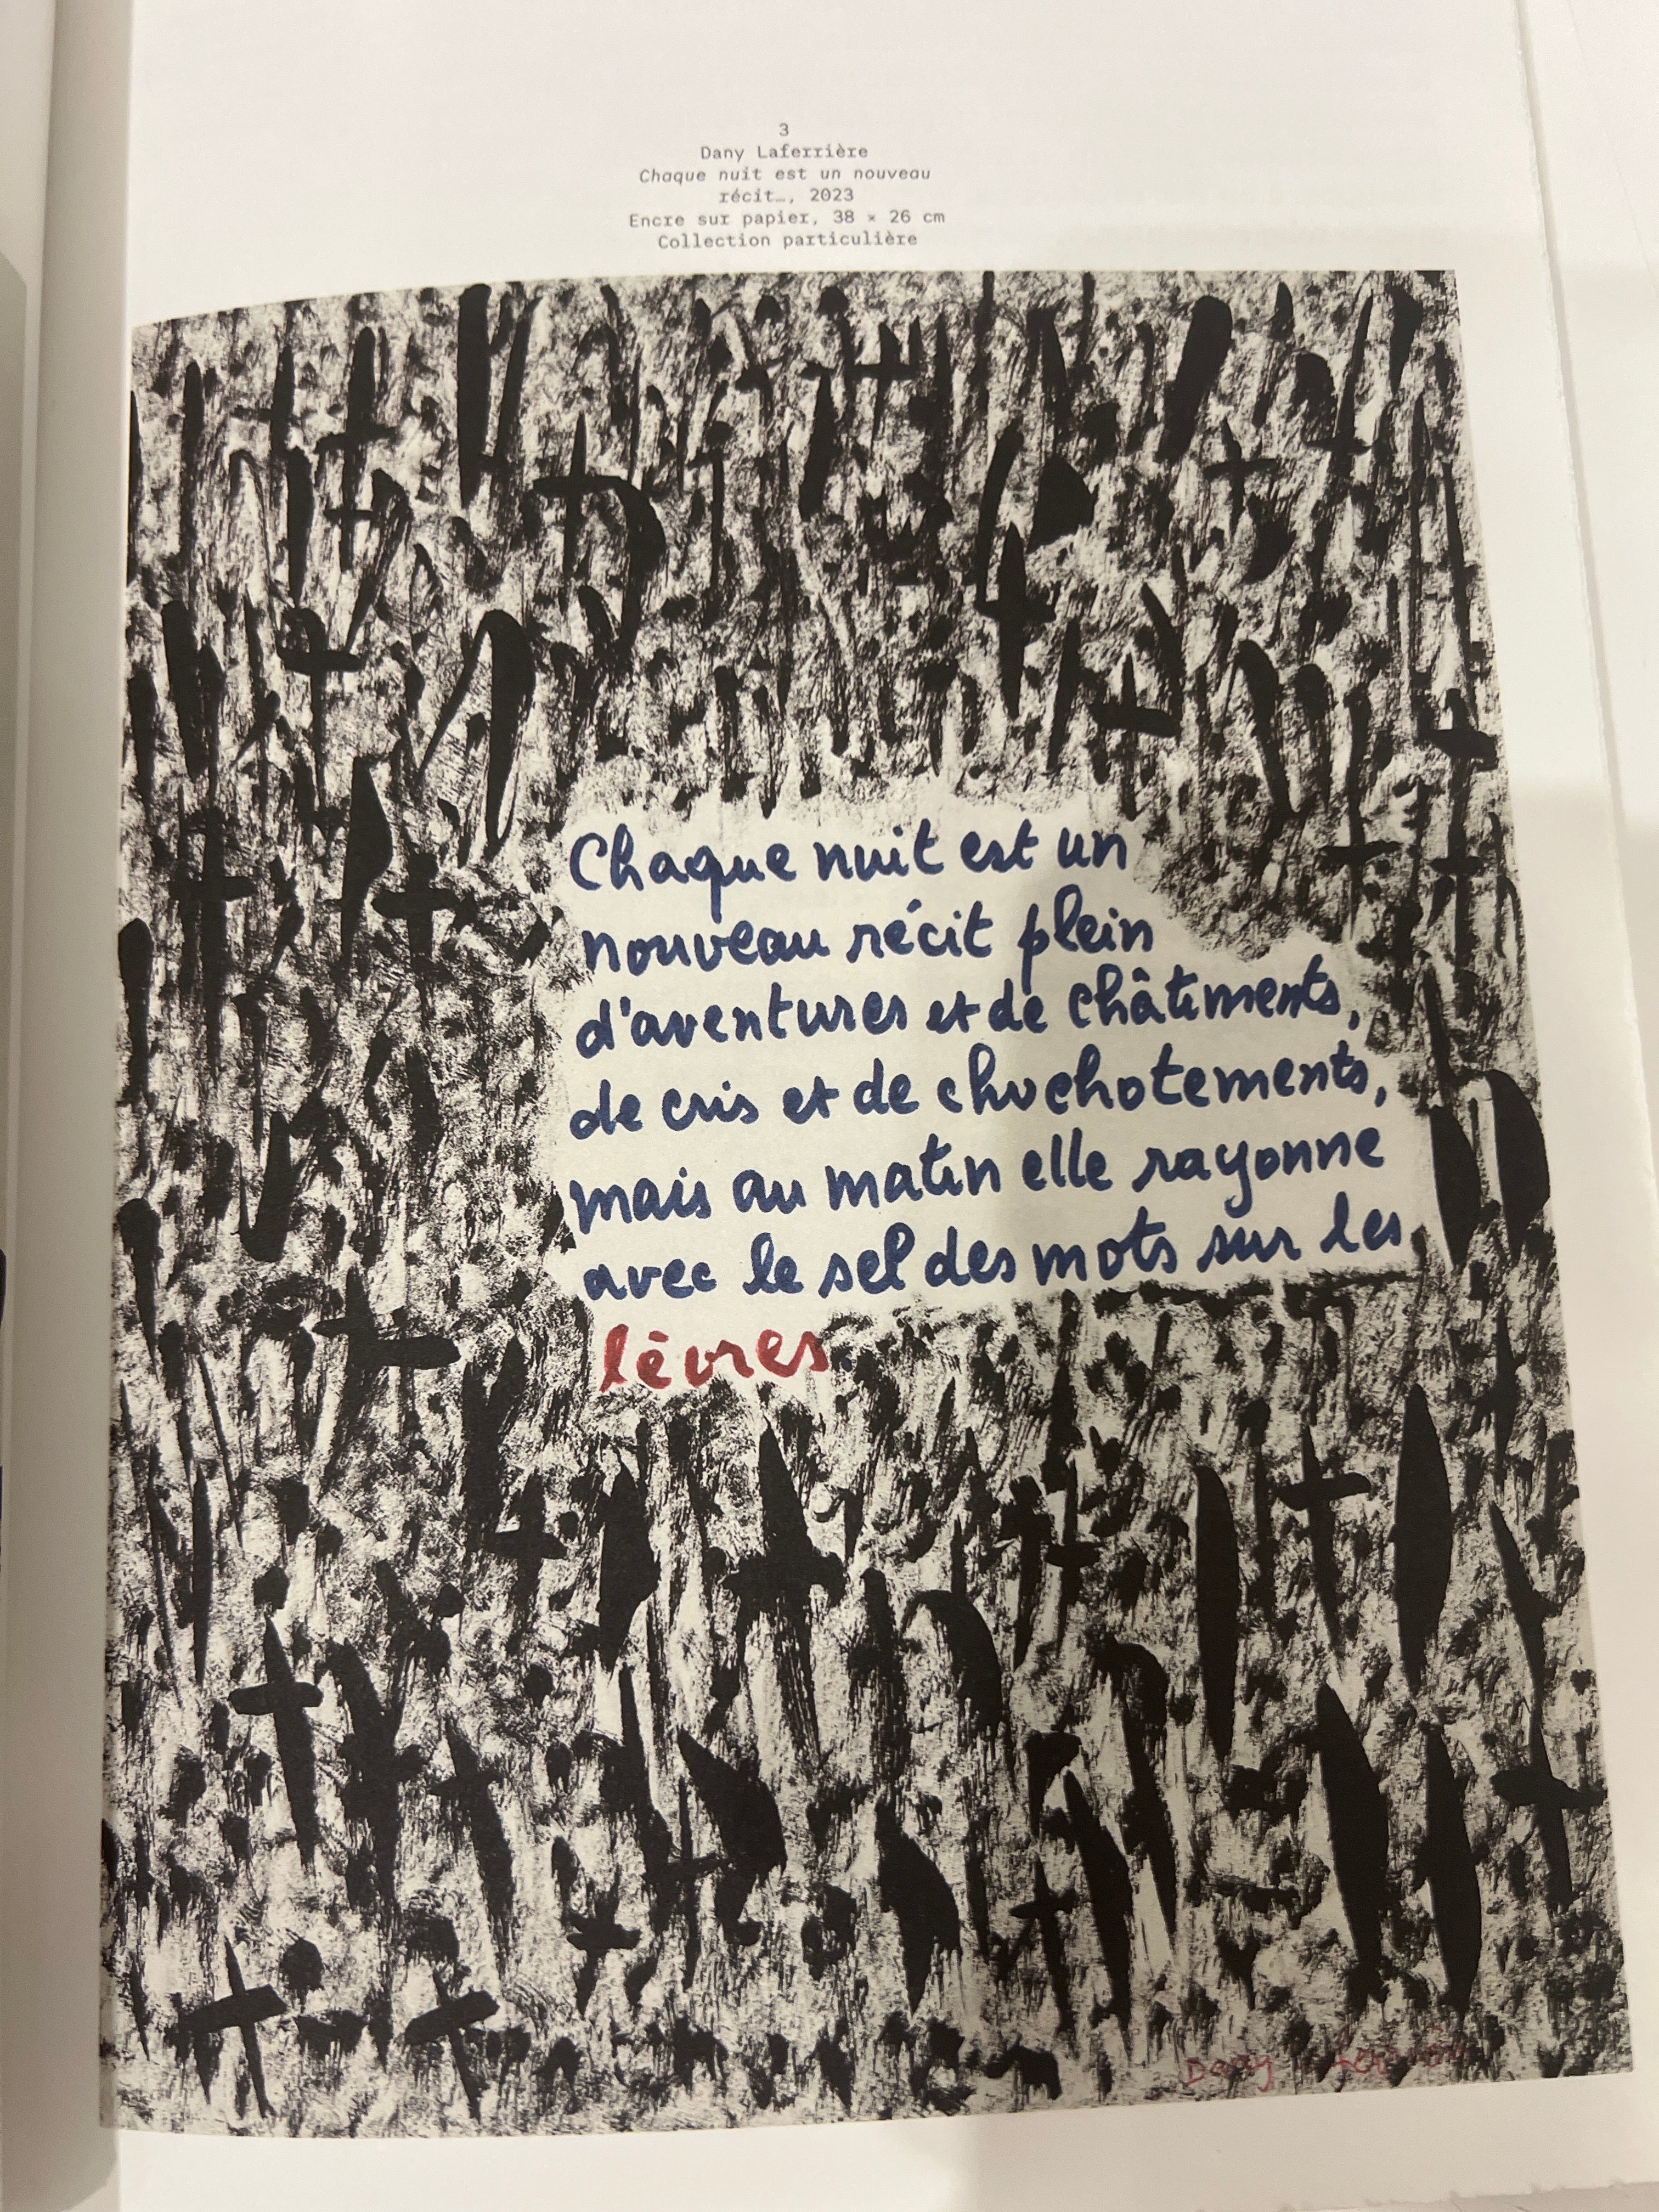 3
Dany Laferrière
Chaque nuit est un nouveau
récit…, 2023
Encre sur papier, 38 × 26 cm
Collection particulière
Chaque nuit est un
nouveau récit plein
d'aventures et de châtiments,
de cris et de chuchotements,
mais au matin elle rayonne
avec le sel des mots sur les
lèvres.
Dany